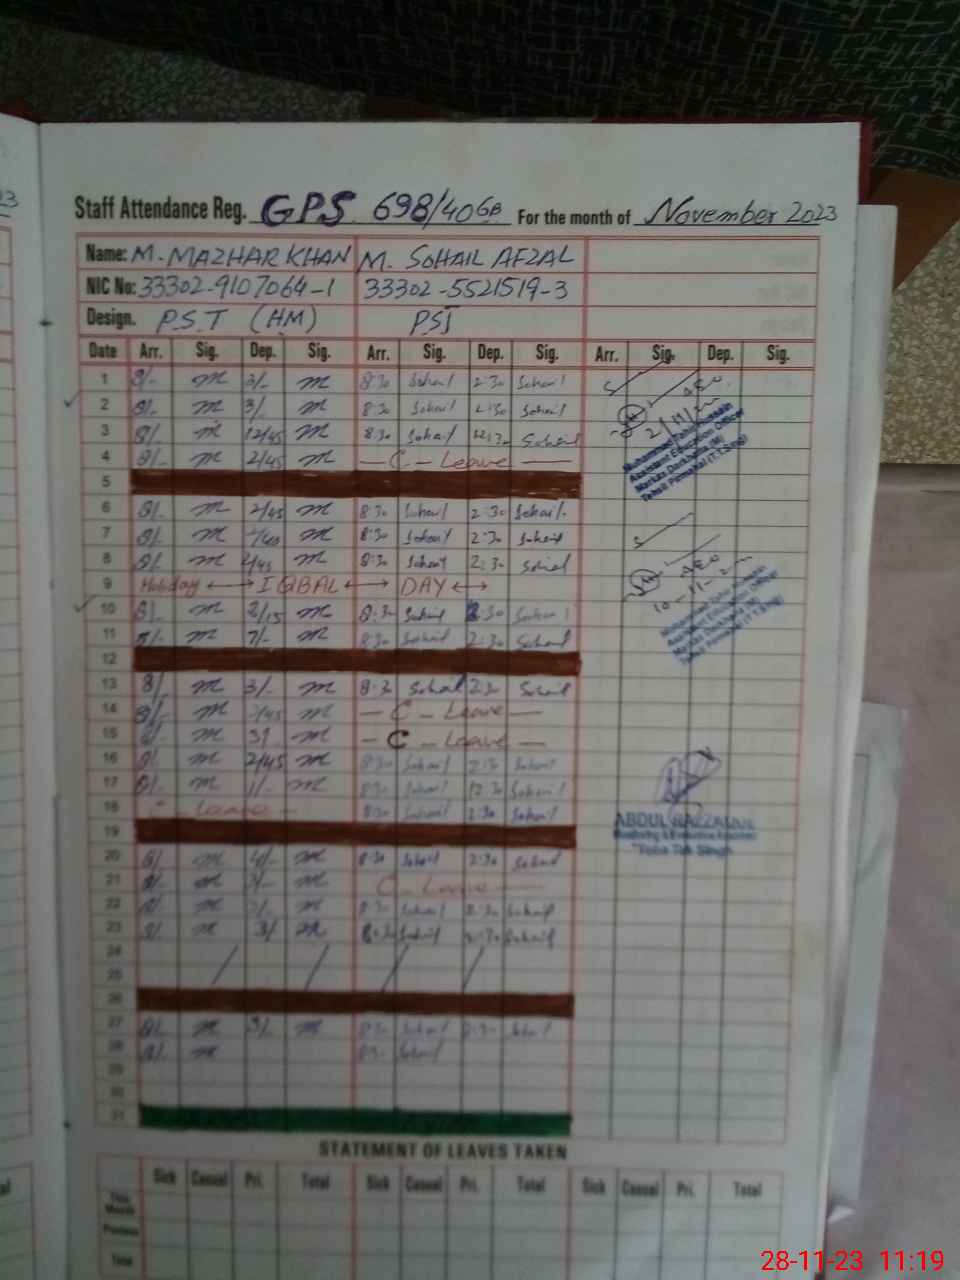 Staff Attendance Reg. GPS 698/40GB For the month of November 2023
Name: M. MAZHAR KHAN M. SOHAIL AFZAL
NIC No: 33302-9107064-1 33302-5521519-3
Design. P.S.T (HM) PST
Date Arr. Sig. Dep. Sig. Arr. Sig. Dep. Sig. Arr. Sig. Dep. Sig.
1 8/- m 3/- m 8:30 Sohail 2:30 Sohail
2 8/- m 3/- m 8:30 Sohail 2:30 Sohail
3 8/- m 12/45 m 8:30 Sohail 12:30 Sohail
4 8/- m 2/45 m — C — Leave —
5
6 8/- m 2/45 m 8:30 Sohail 2:30 Sohail
7 8/- m m 8:30 Sohail 2:30 Sohail
8 8/- m 2/45 m 8:30 Sohail 2:30 Sohail
9 Holiday IQBAL DAY
10 8/- m 2/15 m 8:30 Sohail 2:30 Sohail
11 m m 8:30 Sohail 2:30 Sohail
12
13 8/- m 3/- m 8:30 Sohail 2:30 Sohail
14 8/- m m — C — Leave —
15 8/- m m — C — Leave —
16 8/- m 2/45 m 8:30 Sohail 2:30 Sohail
17 8/- m 1/- m 8:30 Sohail 12:30 Sohail
18 C — Leave — 8:30 Sohail 2:30 Sohail
19
20 8/- m m 8:30 Sohail 2:30 Sohail
21 8/- m 3/- m C — Leave —
22 8/- m 3/- m 8:30 Sohail 2:30 Sohail
23 8/- m 3/ m 8:30 Sohail 2:30 Sohail
24
25
26
27 8/- m 3/- m 8:30 Sohail 2:30 Sohail
28 8/- m 8:30 Sohail
29
30
31
AEO
2/11/
Muhammad Tahir Hussain
Assistant Education Officer
Markaz Darkhana (M)
Tehsil Pirmahal (T.T.Sing)
AEO
10-11-
Muhammad Tahir Hussain
Assistant Education Officer
Markaz Darkhana (M)
Tehsil Pirmahal (T.T.Sing)
ABDUL RAZZAQ
Monitoring & Evaluation Assistant
Toba Tek Singh
STATEMENT OF LEAVES TAKEN
Sick Casual Pri. Total Sick Casual Pri. Total Sick Casual Pri. Total
This Month
Previous
Total
28-11-23 11:19